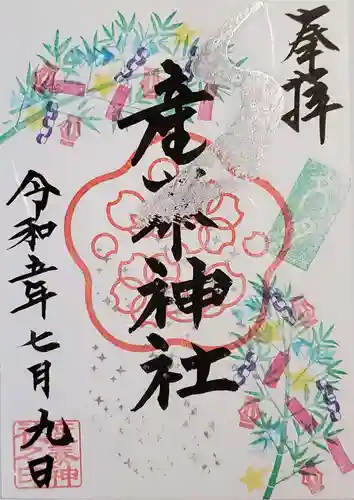 奉拝
産泰神社
令和五年七月九日